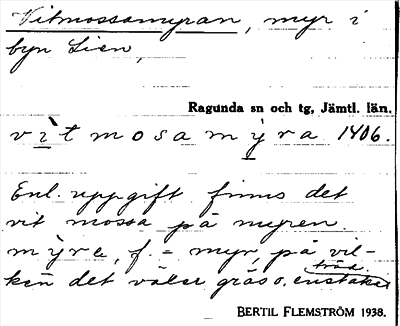 Vitmossamyran, myr i
byn Lien,
Ragunda sn och tg, Jämtl. län.
vìtmosamỳra. 1406.
Enl. uppgift finns det
vit mossa på myren.
mỳra, f. = myr, på vil-
ken det växer gräs o. enstaka
träd.
BERTIL FLEMSTRÖM 1938.